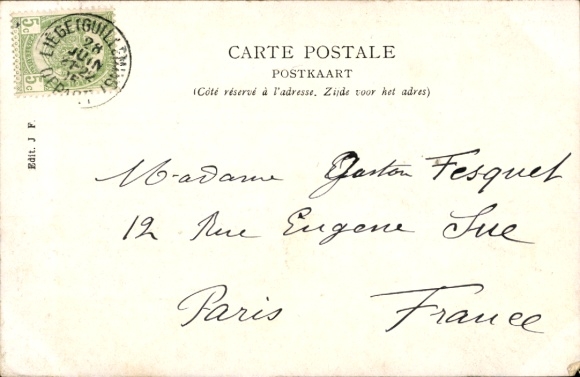 5c 5c
LIÈGE (GUILLEMINS)
28
JUIN
DEPART
CARTE POSTALE
POSTKAART
(Côté réservé à l'adresse. Zijde voor het adres)
Edit. J. F.
Madame Gaston Fesquet
12 Rue Eugene Sue
Paris France